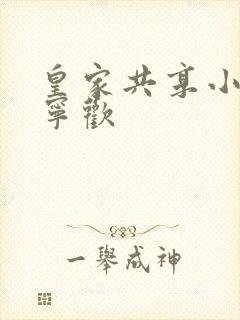 皇家共享小
寧歡
一舉成神